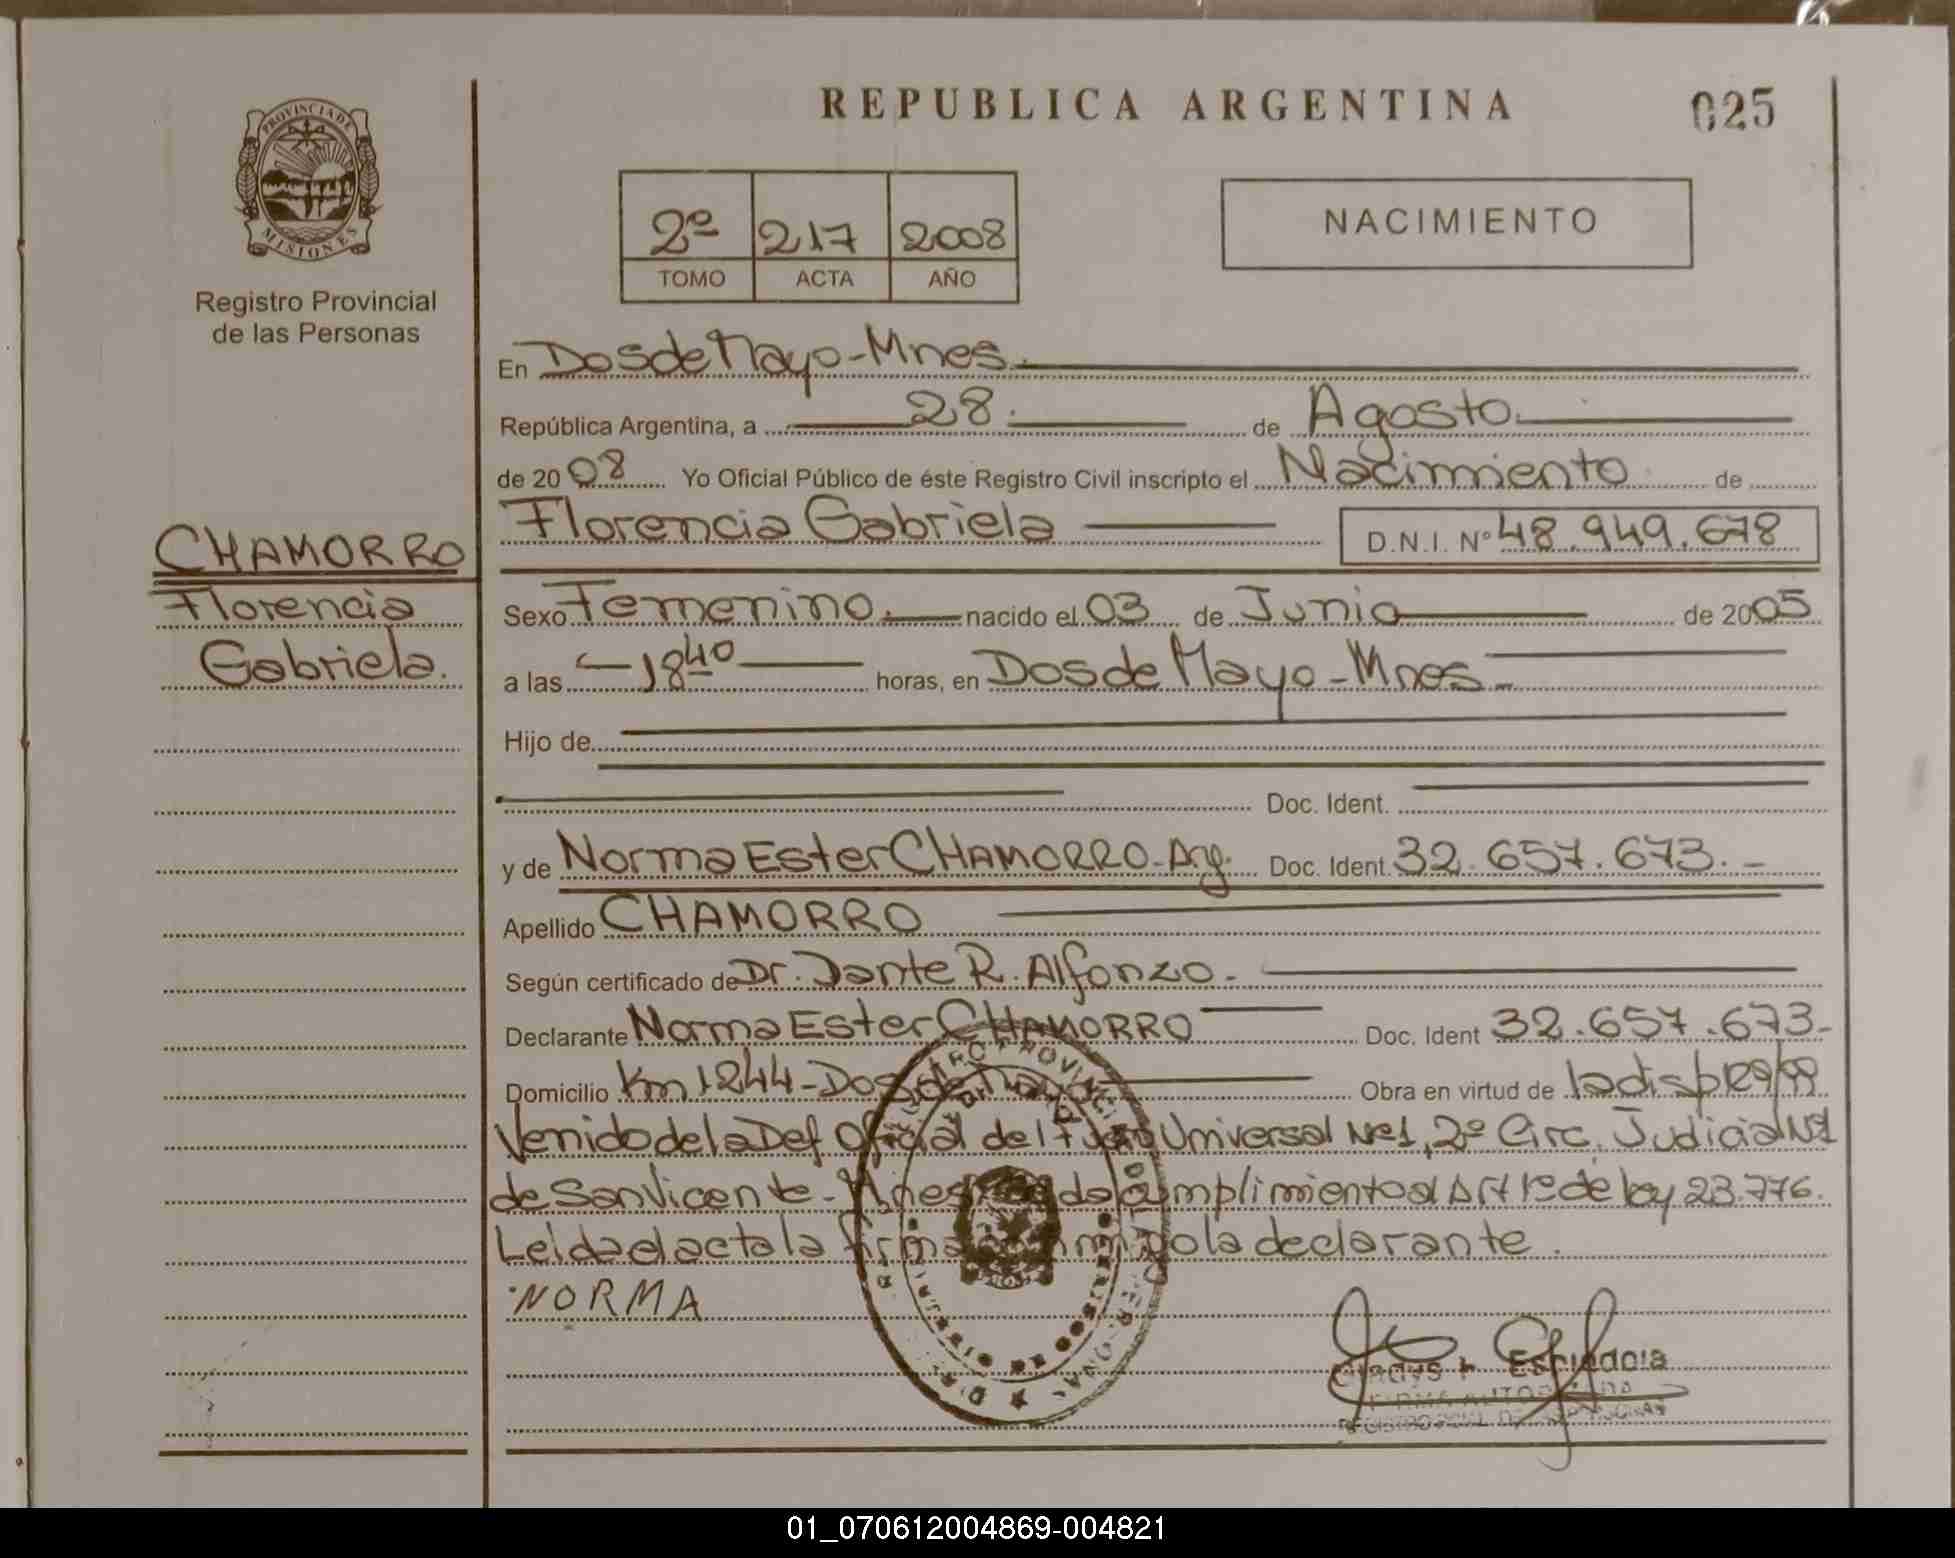 REPUBLICA ARGENTINA
025
PROVINCIA DE
MISIONES
Registro Provincial
de las Personas
2º 217 2008
TOMO ACTA AÑO
NACIMIENTO
En Dos de Mayo - Mnes.
República Argentina, a 28. de Agosto.
de 2008 Yo Oficial Público de éste Registro Civil inscripto el Nacimiento de
Florencia Gabriela D.N.I. Nº 48.949.678
CHAMORRO
Florencia
Gabriela.
Sexo Femenino. nacido el 03 de Junio de 2005
a las 18 40 horas, en Dos de Mayo - Mnes -
Hijo de
Doc. Ident.
y de Norma Ester CHAMORRO - Arg. Doc. Ident. 32.657.673. -
Apellido CHAMORRO
Según certificado de Dr. Dante R. Alfonzo -
Declarante Norma Ester CHAMORRO Doc. Ident 32.657.673 -
Domicilio Km 1244 - Dos de Mayo Obra en virtud de la disp
Venido de la Def. Oficial del Universal Nº 1, 2º Circ. Judicial Nº 1
de San Vicente - Mnes cumplimiento al Art 1º de ley 23.776.
Leida el acta la firma la declarante.
NORMA
Espindola
01_070612004869-004821